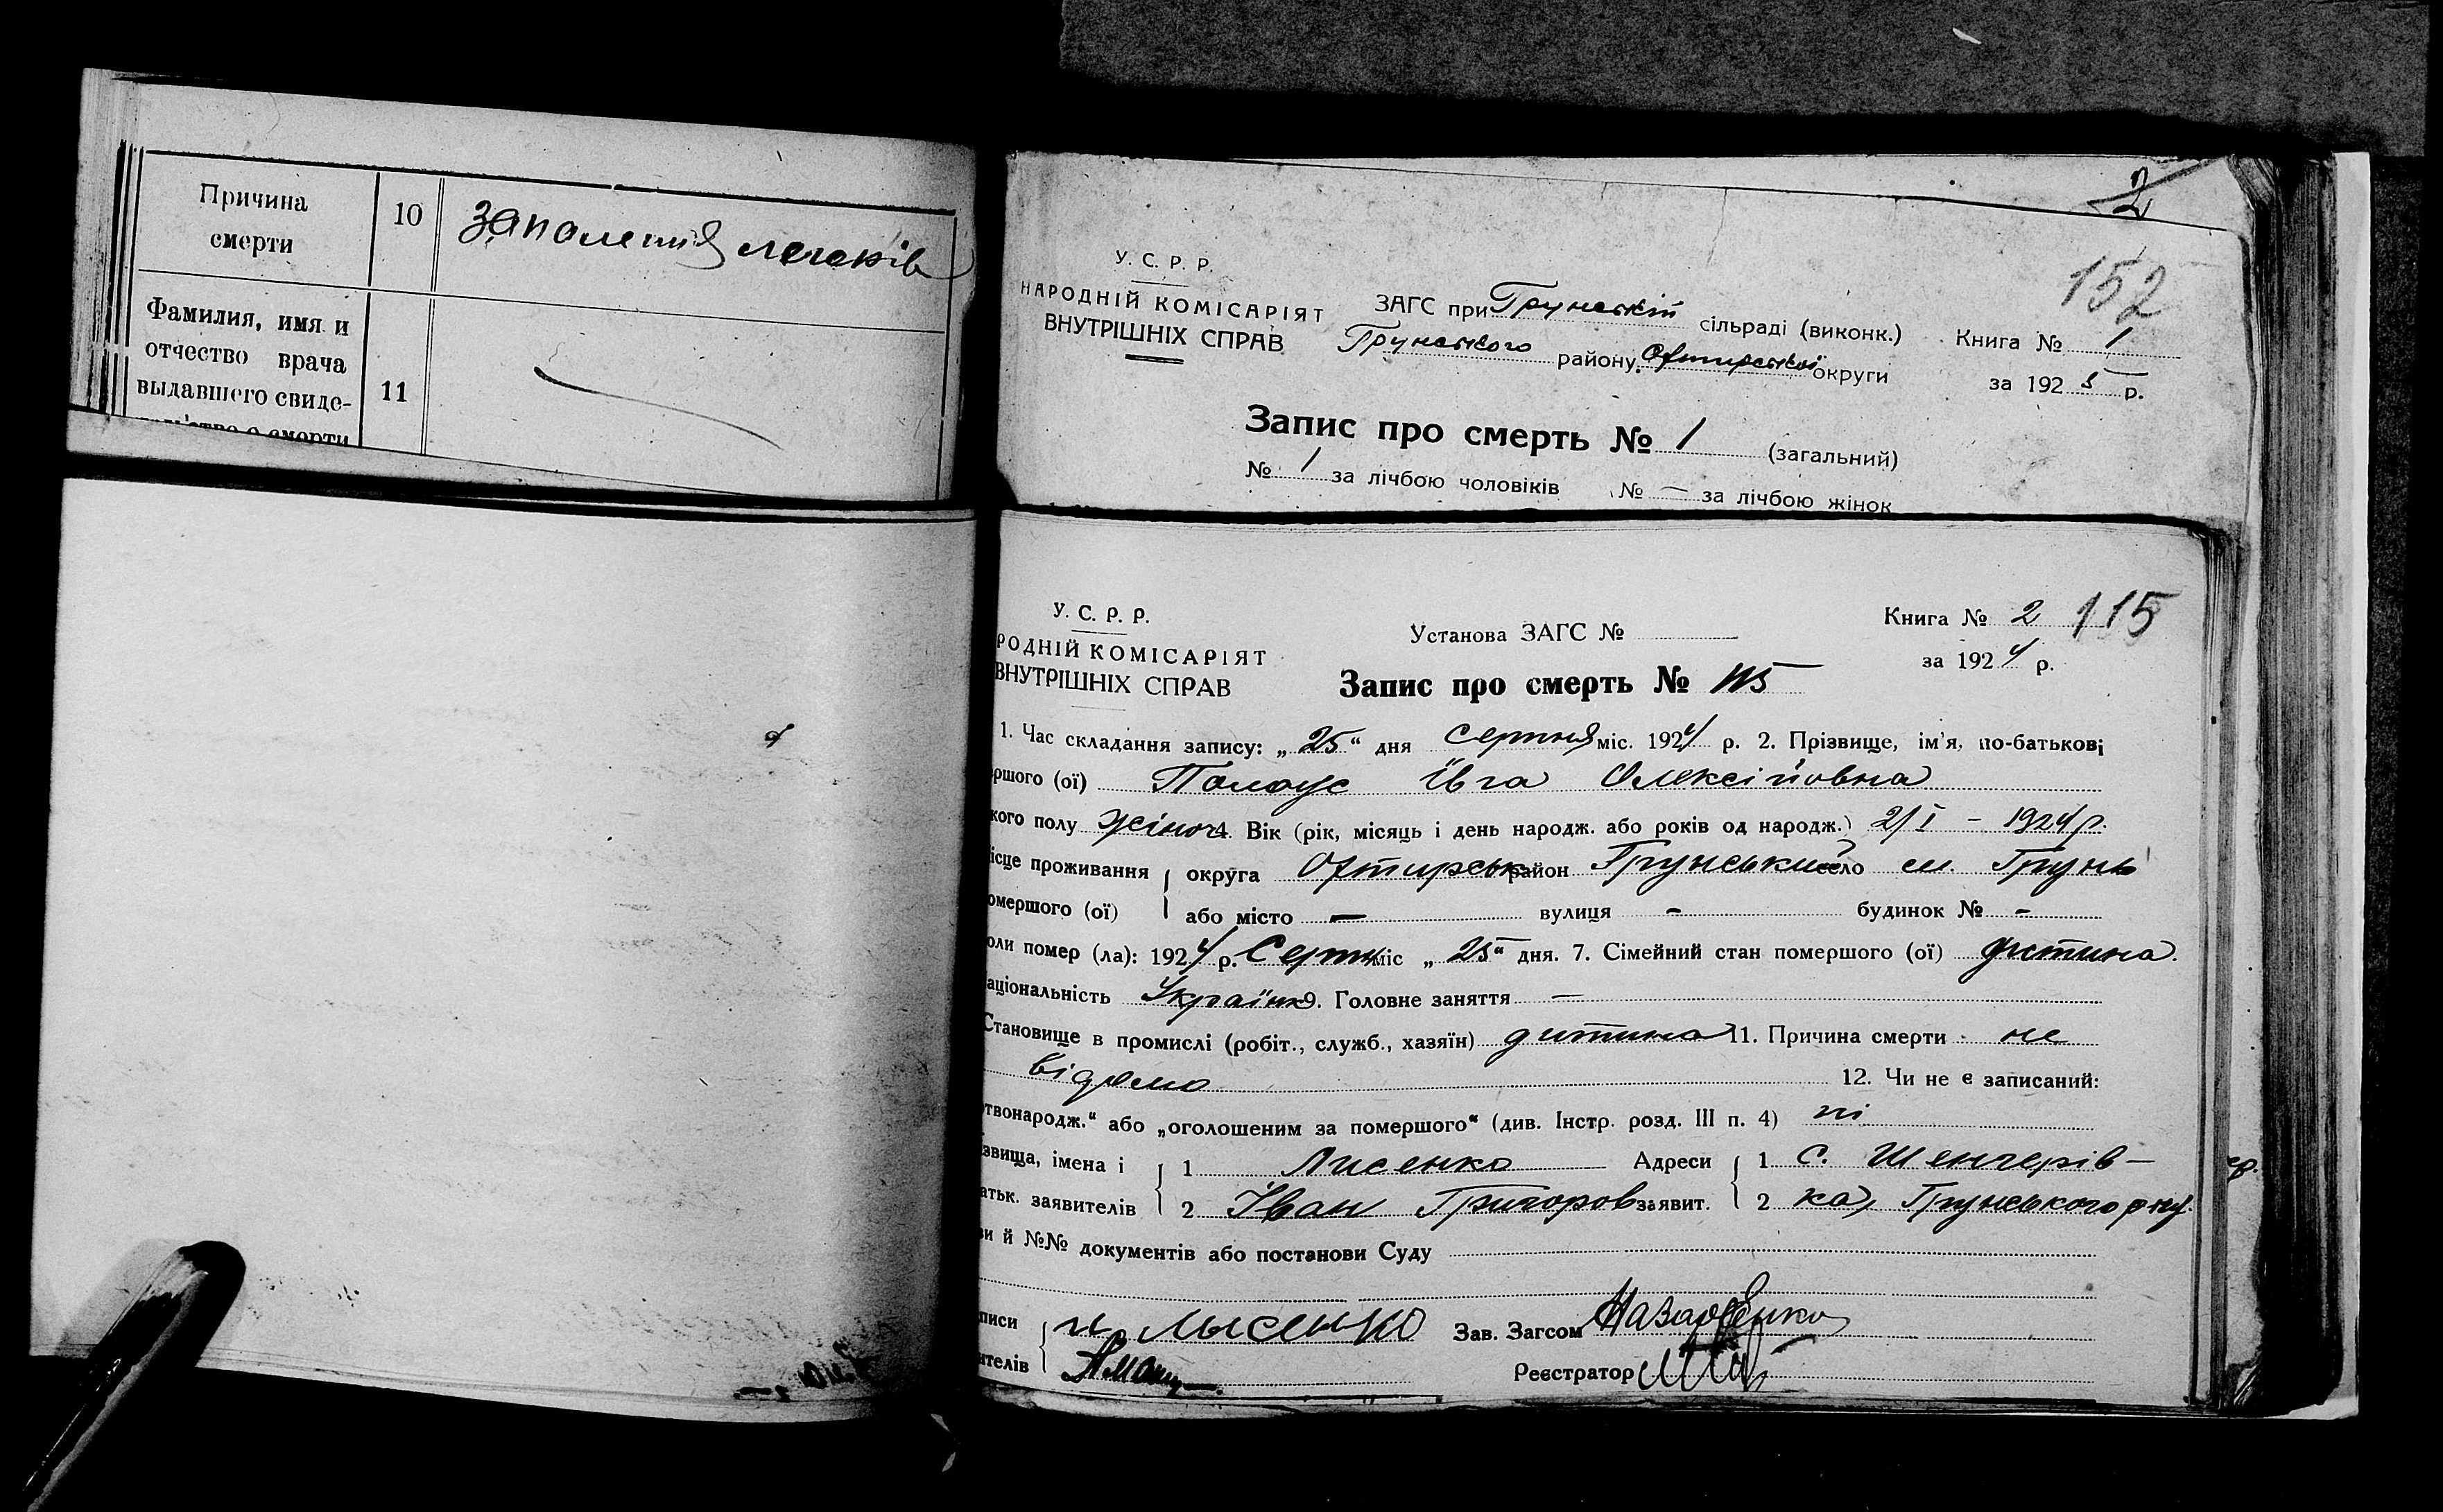 Причина
смерти
10
запаления легеків
Фамилия, имя и
отчество врача
выдавшего свиде-
11
2
152
У. С. Р. Р.
НАРОДНІЙ КОМІСАРІЯТ
ВНУТРІШНІХ СПРАВ
ЗАГС при Грунській сільраді (виконк.)
Грунського району Охтирської округи
Книга № 1
за 1925 р.
Запис про смерть № 1 (загальний)
№ 1 за лічбою чоловіків № — за лічбою жінок
У. С. Р. Р.
РОДНІЙ КОМІСАРІЯТ
ВНУТРІШНІХ СПРАВ
Установа ЗАГС №
Книга № 2 115
за 1924 р.
Запис про смерть № 115
1. Час складання запису: „25“ дня серпня міс. 1924 р. 2. Прізвище, ім'я, по-батькові
ршого (ої) Івга Олексіївна
кого полу жіноч. 4. Вік (рік, місяць і день народж. або років од народж.) 2/I – 1924 р.
ісце проживання округа Охтирськ район Грунський село м. Грунь
омершого (ої) або місто — вулиця - будинок № -
оли помер (ла): 1924 р. Серпн міс „25“ дня. 7. Сімейний стан помершого (ої) дитина.
аціональність Українк 9. Головне заняття —
Становище в промислі (робіт., служб., хазяїн) дитина 11. Причина смерти не
відомо 12. Чи не є записаний:
твонародж.“ або „оголошеним за помершого“ (див. Інстр. розд. III п. 4) ні
звища, імена і 1 Лисенко Адреси 1 с. Шенгерів-
атьк. заявителів 2 Іван Григоров заявит. 2 ка, Грунського р-ну.
ви й №№ документів або постанови Суду
писи и Лысенко Зав. Загсом Назаренко
ителів Реєстратор